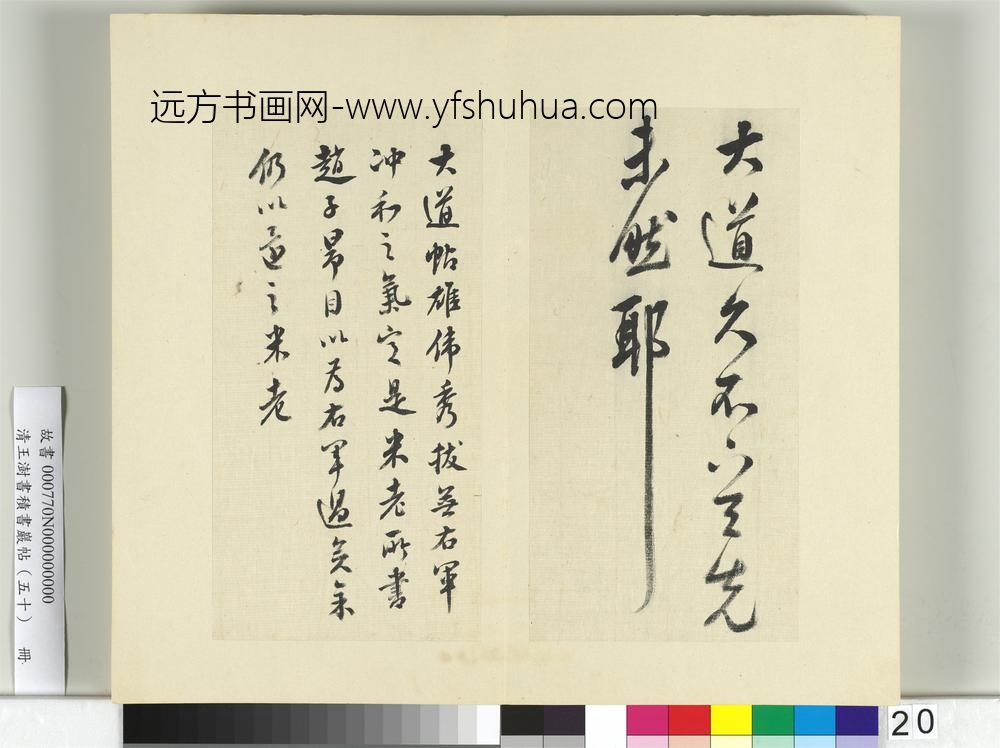 远方书画网-www.yfshuhua.com
大道久不下与先
未然耶
大道帖雄偉秀拔無右軍
冲和之氣定是米老所書
趙子昂目以為右軍過矣余
仍以還之米老
故書 000770N000000000
清王澍書積書巖帖（五十） 冊
20